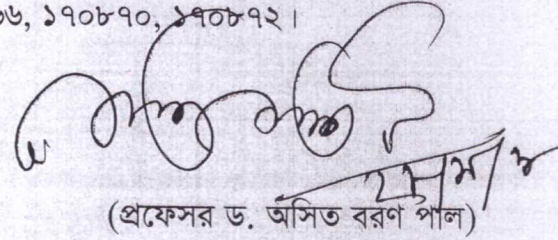 ৬, ১৭০৮৭০, ১৭০৮৭২।
(প্রফেসর ড. অসিত বরণ পাল)